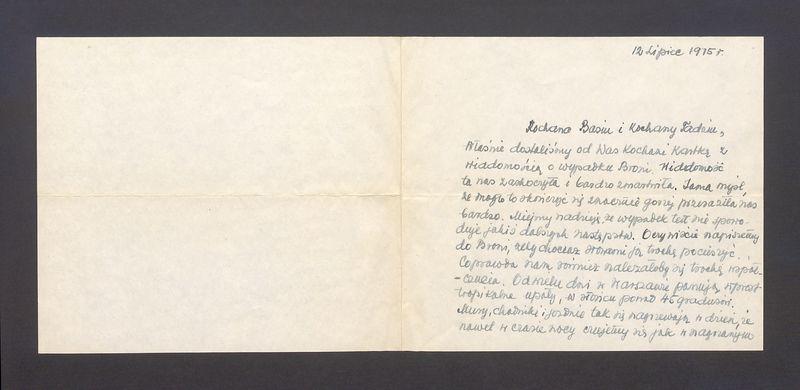 12 Lipiec 1975 r.
Kochana Basiu i Kochany Tadziu,
Właśnie dostaliśmy od Was Kochani Kartkę z
wiadomością o wypadku Broni. Wiadomość
ta nas zaskoczyła i bardzo zmartwiła. Sama myśl,
że mogło to skończyć się znacznie gorzej przeraziła nas
bardzo. Miejmy nadzieję, że wypadek ten nie spowo-
duje jakiś dalszych następstw. Oczywiście napiszemy
do Broni, żeby chociaż słowami ją trochę pocieszyć.
Coprawda nam również należałoby się trochę współ-
-czucia. Od wielu dni w Warszawie panują wprost
tropikalne upały, w słońcu ponad 46 gradusów.
Mury, chodniki i jezdnie tak się nagrzewają w dzień, że
nawet w czasie nocy czujemy się jak w nagrzanym